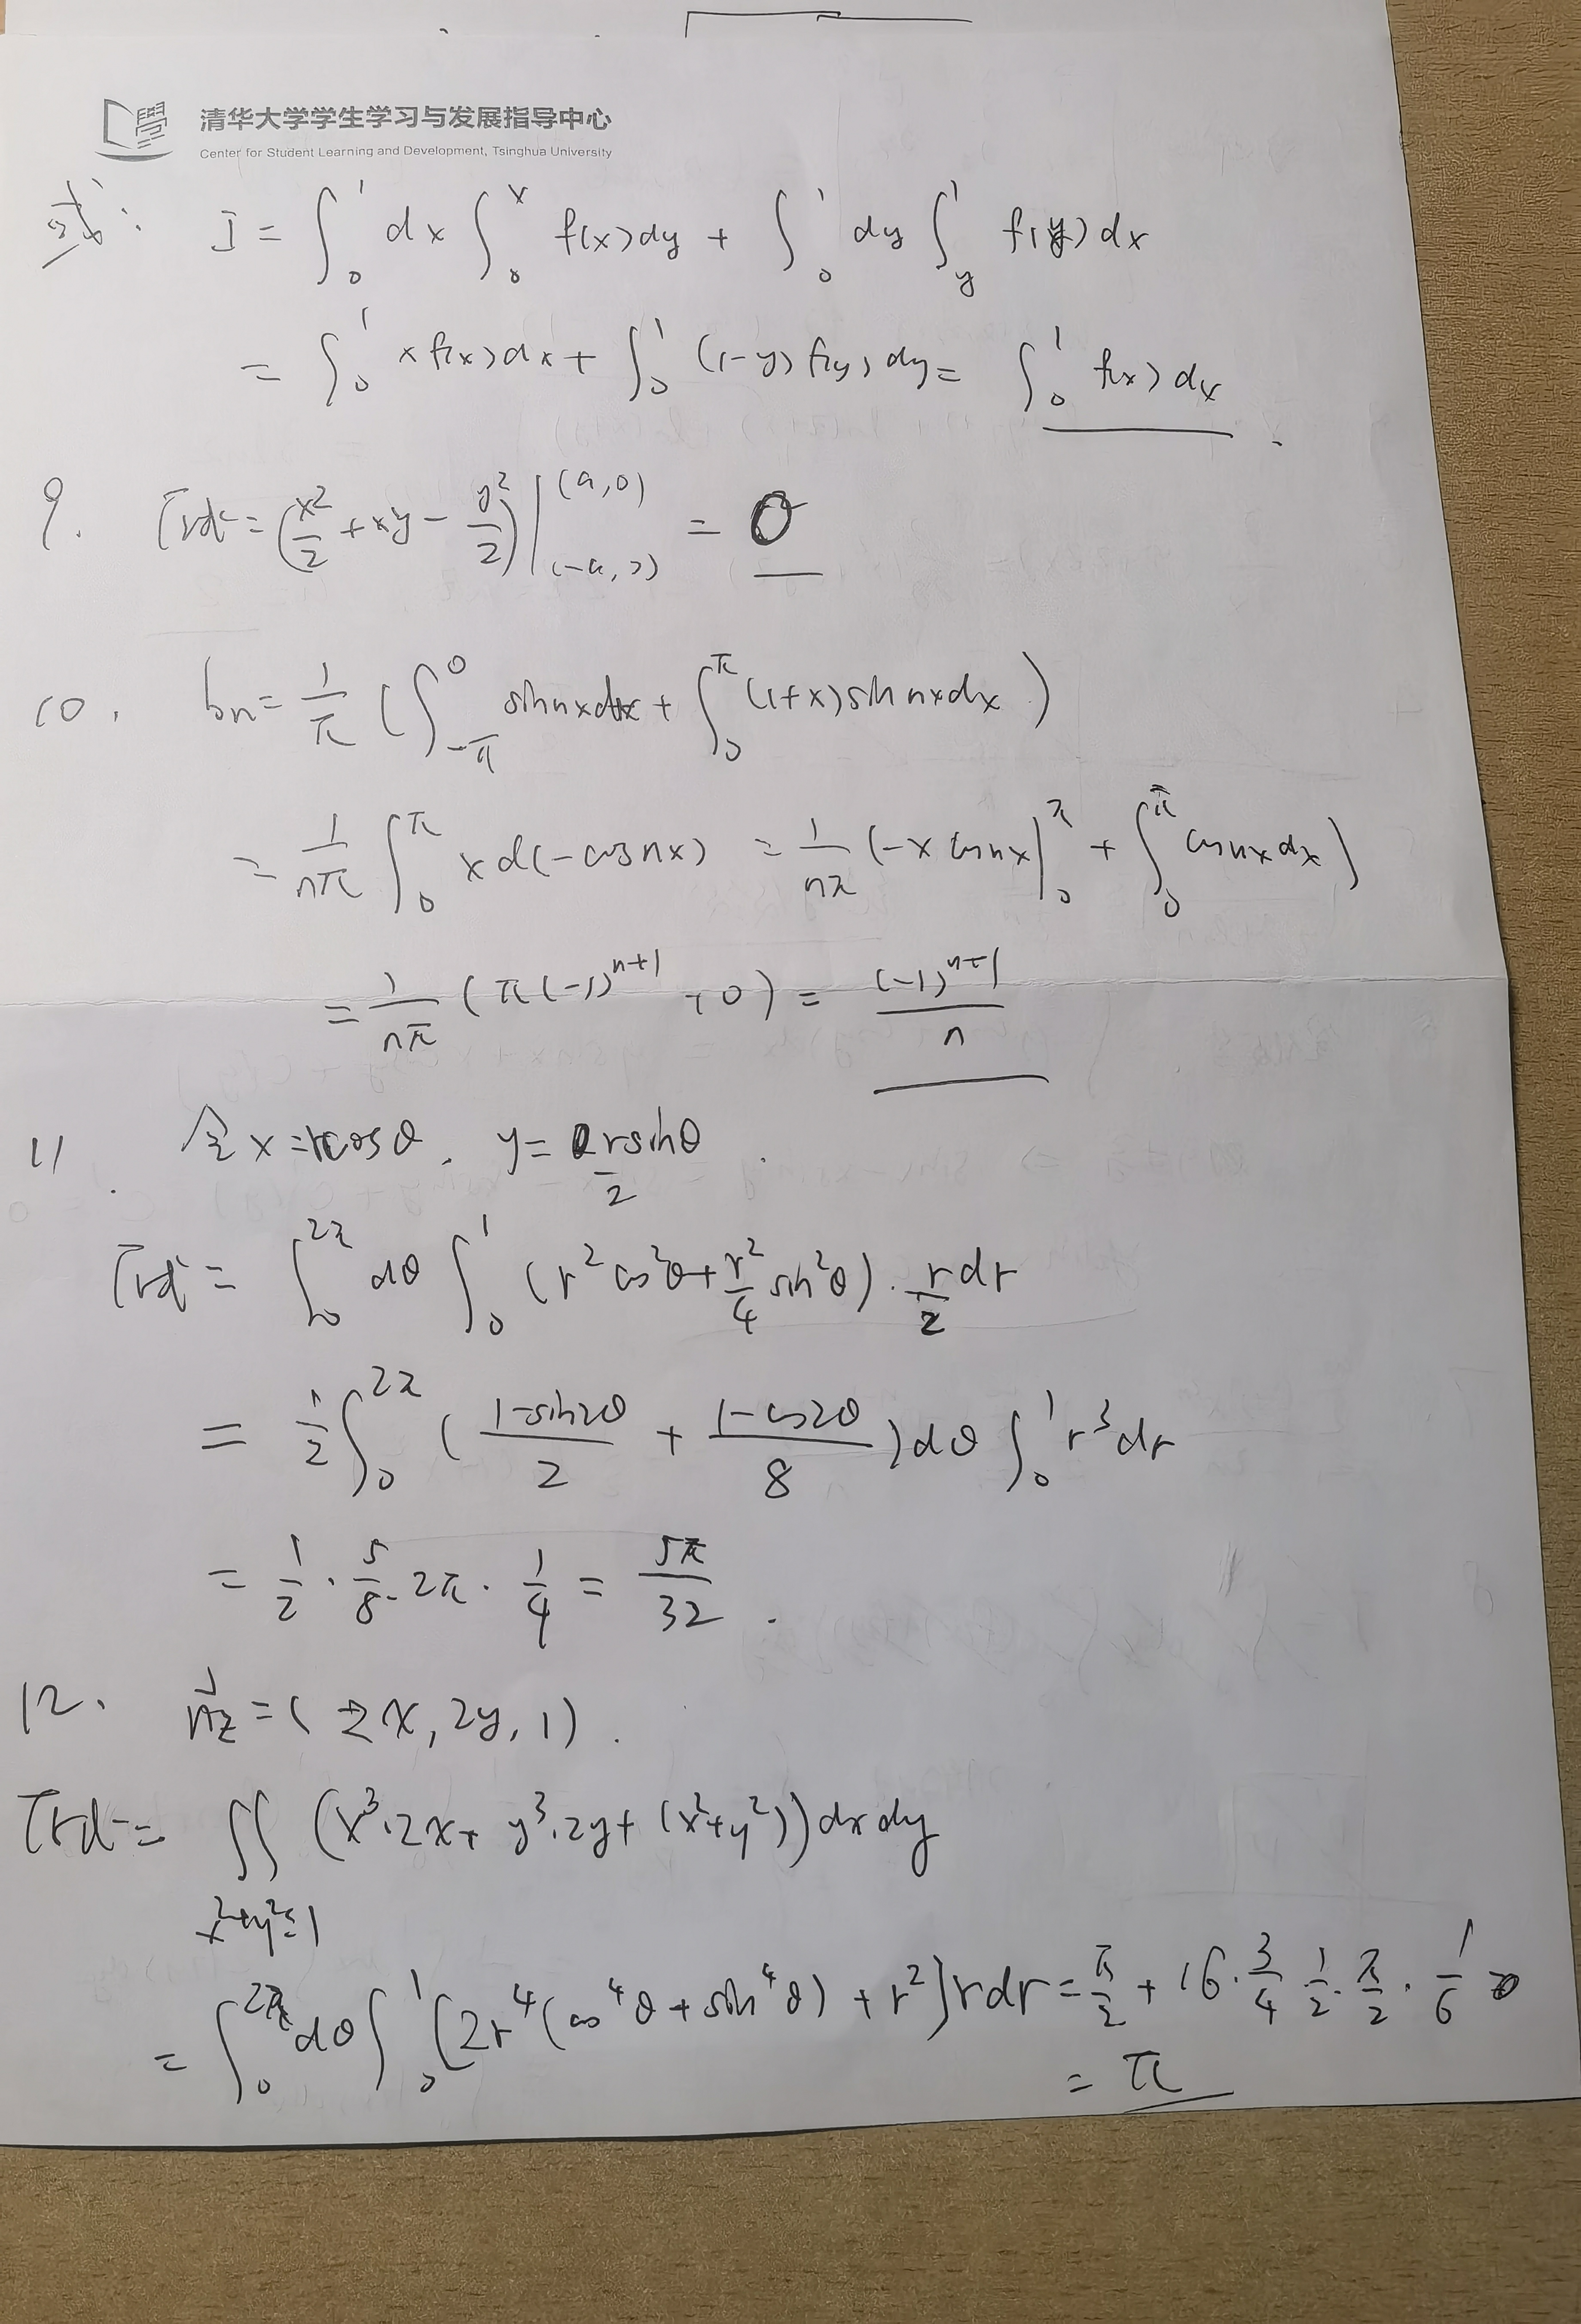 清华大学学生学习与发展指导中心
Center for Student Learning and Development, Tsinghua University
或: I = ∫₀¹ dx ∫₀ˣ f(x)dy + ∫₀¹ dy ∫_y¹ f(y)dx
= ∫₀¹ x f(x)dx + ∫₀¹ (1-y) f(y)dy = ∫₀¹ f(x)dx .
9. I_rd = (x²/2 + xy - y²/2)|_(-a,0)^(a,0) = 0
10. bn = 1/π (∫_-π^0 sin nx dx + ∫₀^π (1+x) sin nx dx)
= 1/(nπ) ∫₀^π x d(-cos nx) = 1/(nπ) (-x cos nx|₀^π + ∫₀^π cos nx dx)
= 1/(nπ) (π(-1)^(n+1) + 0) = (-1)^(n+1)/n
11. 令 x = r cosθ, y = r sinθ/2 .
I_rd = ∫₀^2π dθ ∫₀¹ (r² cos²θ + r²/4 sin²θ) · r/2 dr
= 1/2 ∫₀^2π ( (1-sin2θ)/2 + (1-cos2θ)/8 ) dθ ∫₀¹ r³ dr
= 1/2 · 5/8 · 2π · 1/4 = 5π/32 .
12. n⃗z = (2x, 2y, 1) .
I_rd = ∬ (x³·2x + y³·2y + (x²+y²)) dx dy
x²+y²≤1
= ∫₀^2π dθ ∫₀¹ [2r⁴(cos⁴θ + sin⁴θ) + r²] r dr = π/2 + 16 · 3/4 · 1/2 · π/2 · 1/6
= π